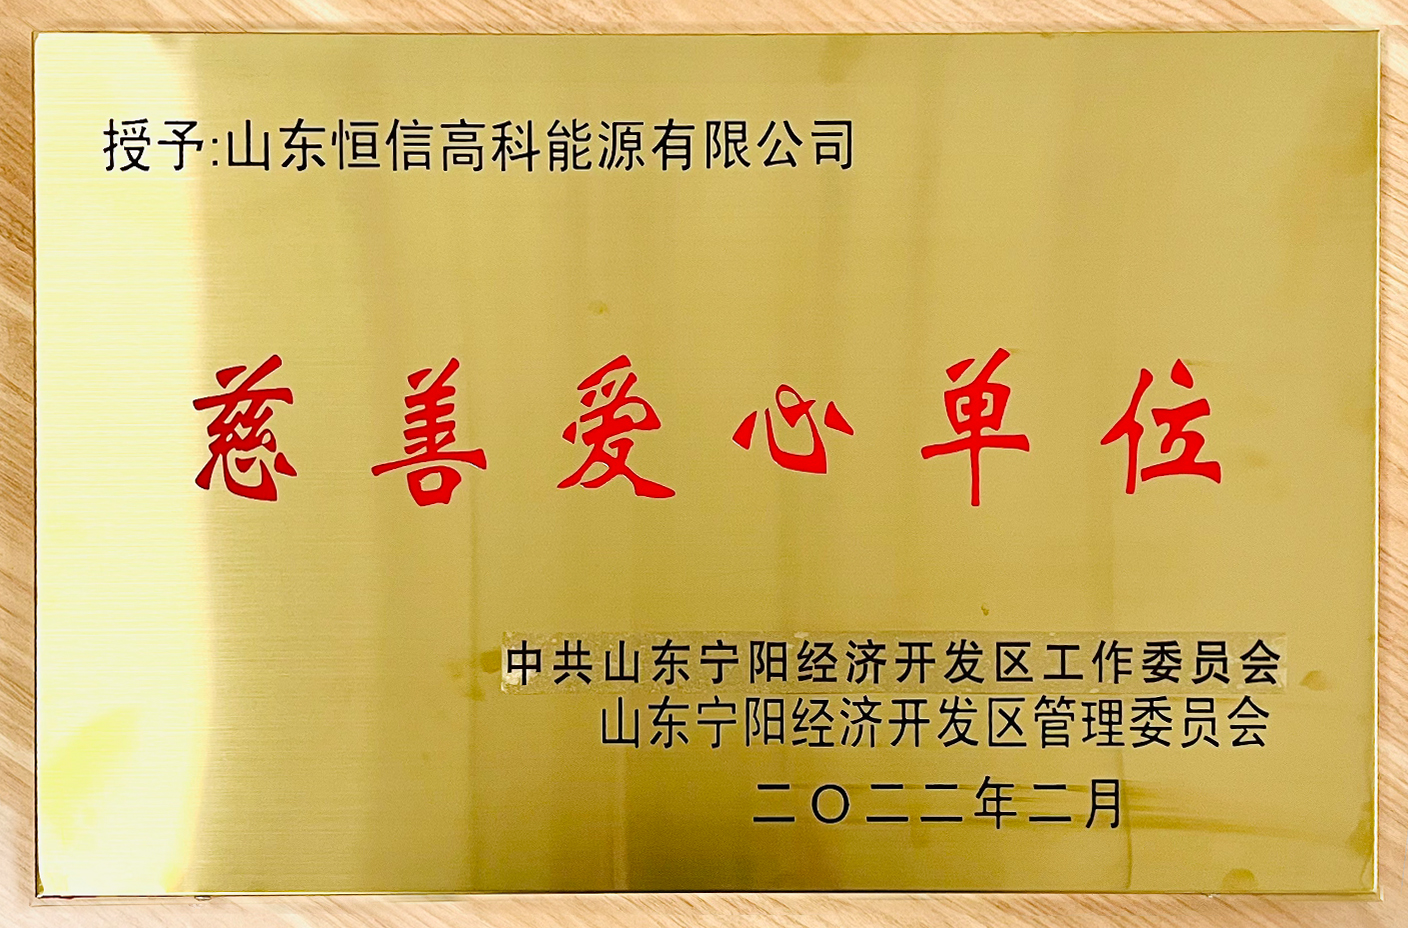 授予:山东恒信高科能源有限公司
慈善爱心单位
中共山东宁阳经济开发区工作委员会
山东宁阳经济开发区管理委员会
二〇二二年二月